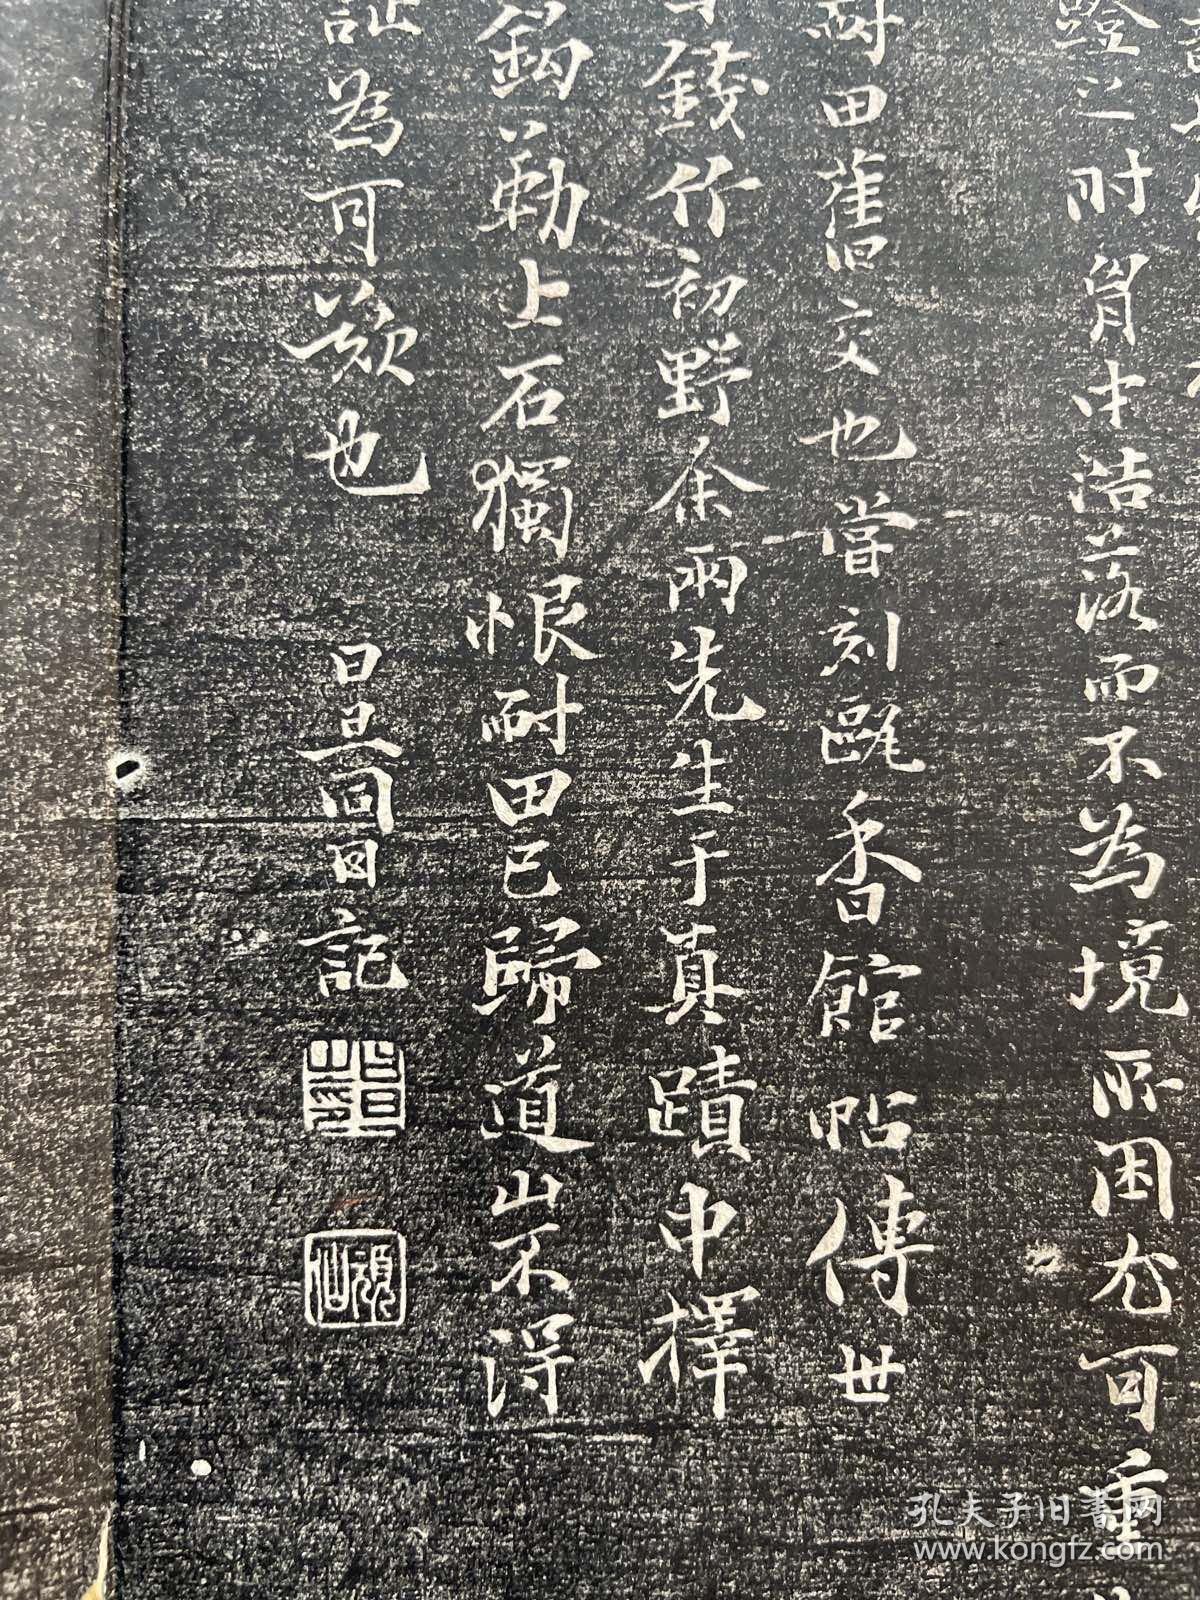 證之時胷中浩落而不為境所困尤可重
耐田舊交也嘗刻甌香館帖傳世
錢竹初野余兩先生于真蹟中擇
鈎勒上石獨恨耐田已歸道山不得
証為可歎也
日旦同日記
孔夫子旧书网
www.kongfz.com